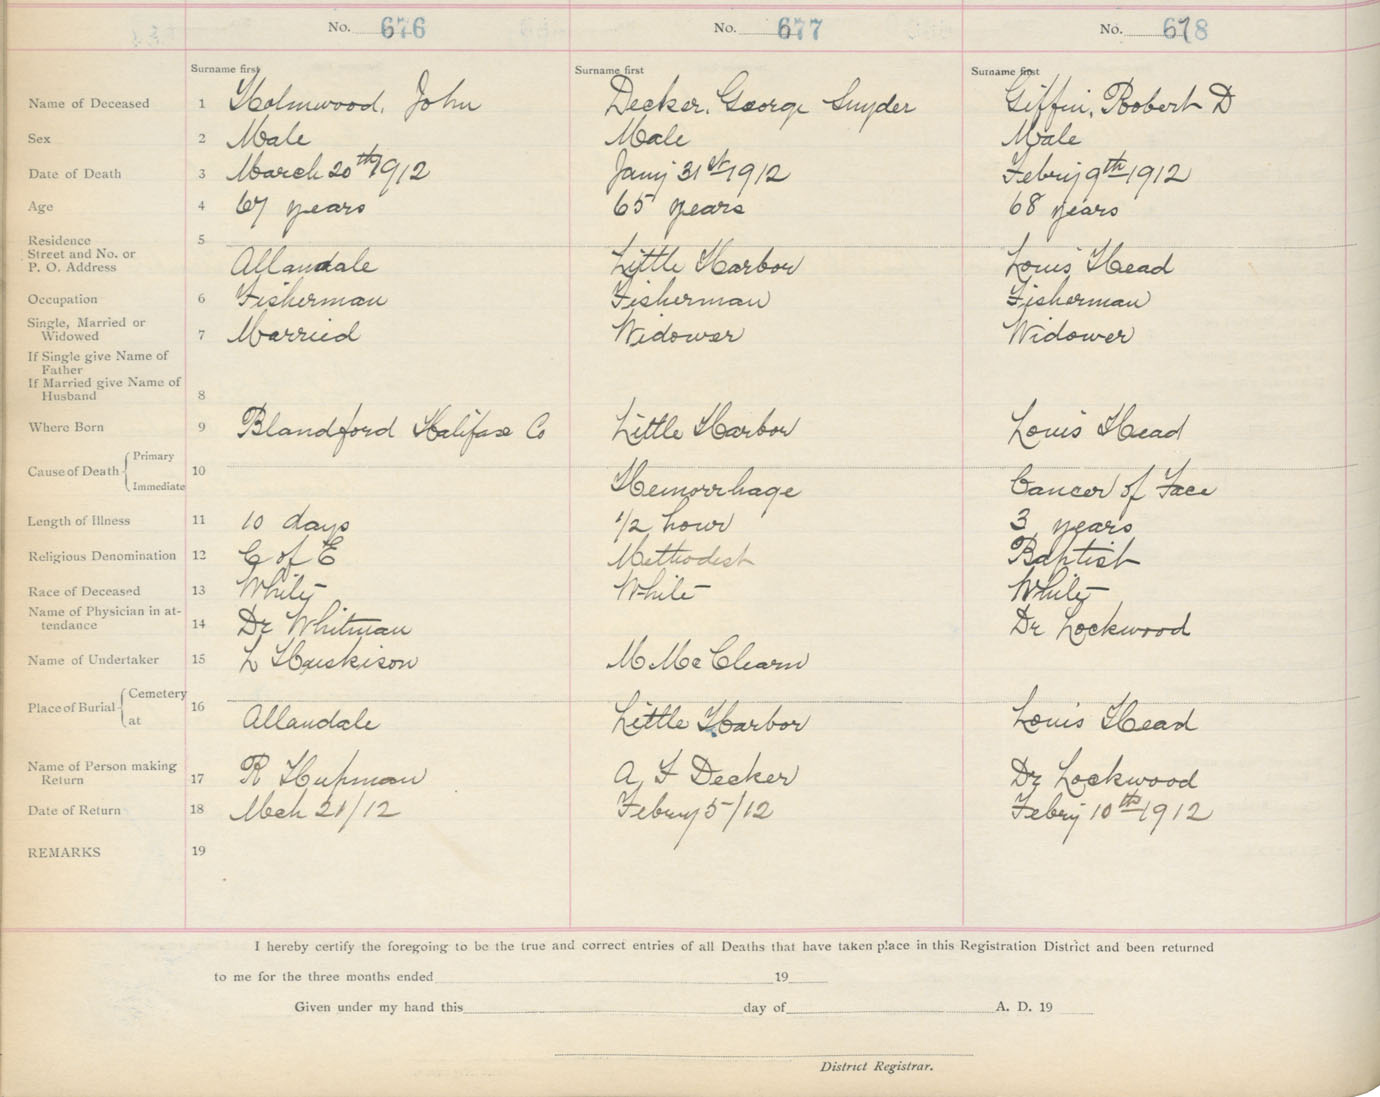 No. 676 No. 677 No. 678
Surname first Surname first Surname first
Name of Deceased 1 Holmwood, John Decker, George Snyder Giffin, Robert D
Sex 2 Male Male Male
Date of Death 3 March 20th 1912 Jany 31st 1912 Febry 9th 1912
Age 4 67 years 65 years 68 years
Residence 5
Street and No. or
P. O. Address Allandale Little Harbor Louis Head
Occupation 6 Fisherman Fisherman Fisherman
Single, Married or
Widowed 7 Married Widower Widower
If Single give Name of
Father
If Married give Name of
Husband 8
Where Born 9 Blandford Halifax Co Little Harbor Louis Head
Cause of Death Primary 10
Immediate Hemorrhage Cancer of Face
Length of Illness 11 10 days 1/2 hour 3 years
Religious Denomination 12 C of E Methodist Baptist
Race of Deceased 13 White White White
Name of Physician in at-
tendance 14 Dr Whitman Dr Lockwood
Name of Undertaker 15 L Huskison M McClearn
Place of Burial Cemetery 16
at Allandale Little Harbor Louis Head
Name of Person making
Return 17 R Hupman A F Decker Dr Lockwood
Date of Return 18 Mch 21/12 Febry 5/12 Febry 10th 1912
REMARKS 19
I hereby certify the foregoing to be the true and correct entries of all Deaths that have taken place in this Registration District and been returned
to me for the three months ended 19
Given under my hand this day of A. D. 19
District Registrar.